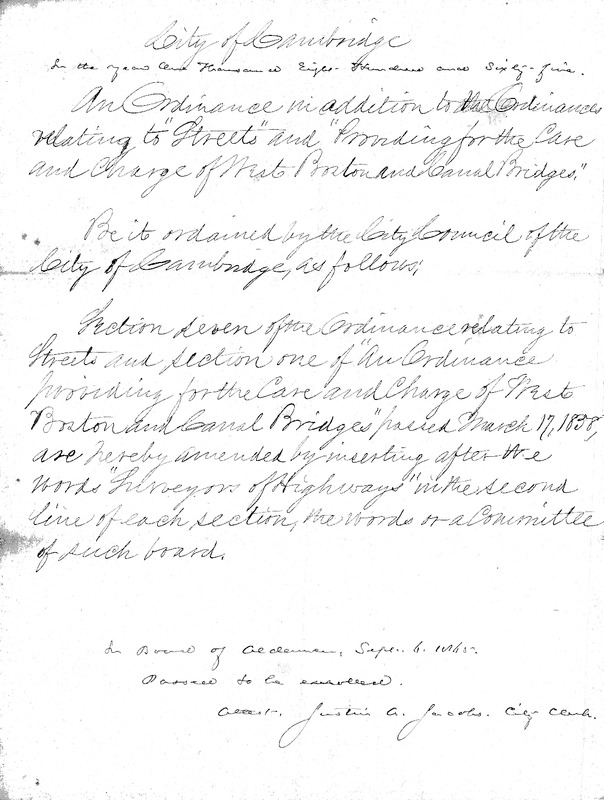 City of Cambridge
In the year One Thousand Eight Hundred and Sixty-five.
An Ordinance in addition to the Ordinances
relating to "Streets" and, "Providing for the Care
and Charge of West Boston and Canal Bridges."
Be it ordained by the City Council of the
City of Cambridge, as follows;
Section seven of the Ordinance relating to
Streets and section one of "An Ordinance
providing for the Care and Charge of West
Boston and Canal Bridges" passed March 17, 1858,
are hereby amended by inserting after the
words "Surveyors of Highways" in the second
line of each section, the words or a Committee
of such board.
In Board of Aldermen, Sept. 6. 1865.
Passed to be enrolled.
Attest. Justin A. Jacobs. City Clerk.